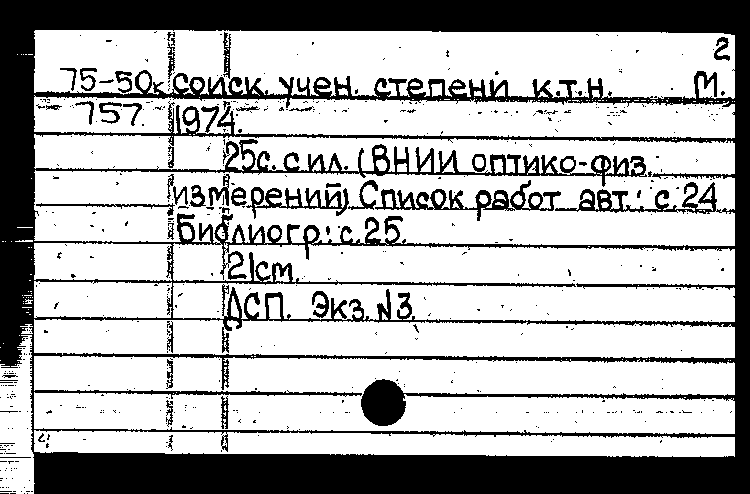 2
75-50к соиск. учен. степени к.т.н. М.
757. 1974.
25с. с ил. (ВНИИ оптико-физ.
измерений) Список работ авт.: с.24
Библиогр: с.25.
21см.
ДСП. Экз. N3.
4